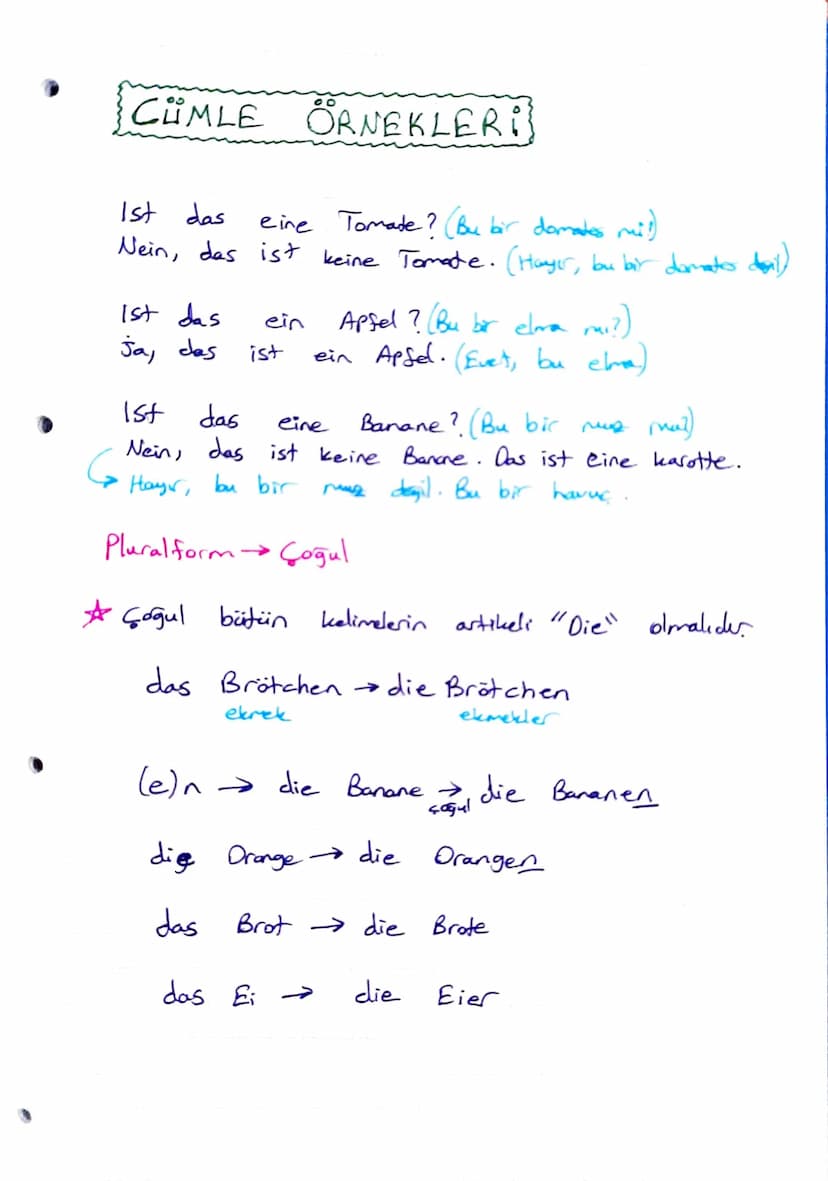 CÜMLE ÖRNEKLERİ
Ist das eine Tomate? (Bu bir domates mi?)
Nein, das ist keine Tomate. (Hayır, bu bir domates değil)
Ist das ein Apfel? (Bu bir elma mı?)
Ja, das ist ein Apfel. (Evet, bu elma)
Ist das eine Banane? (Bu bir muz mu?)
Nein, das ist keine Banane. Das ist eine karotte.
→ Hayır, bu bir muz değil. Bu bir havuç.
Pluralform → Çoğul
☆ Çoğul bütün kelimelerin artikeli "Die" olmalıdır.
das Brötchen → die Brötchen
ekmek ekmekler
(e)n → die Banane → die Bananen
çoğul
die Orange → die Orangen
das Brot → die Brote
das Ei → die Eier